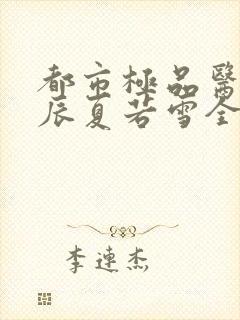 都市極品醫
辰夏若雪全
李連杰